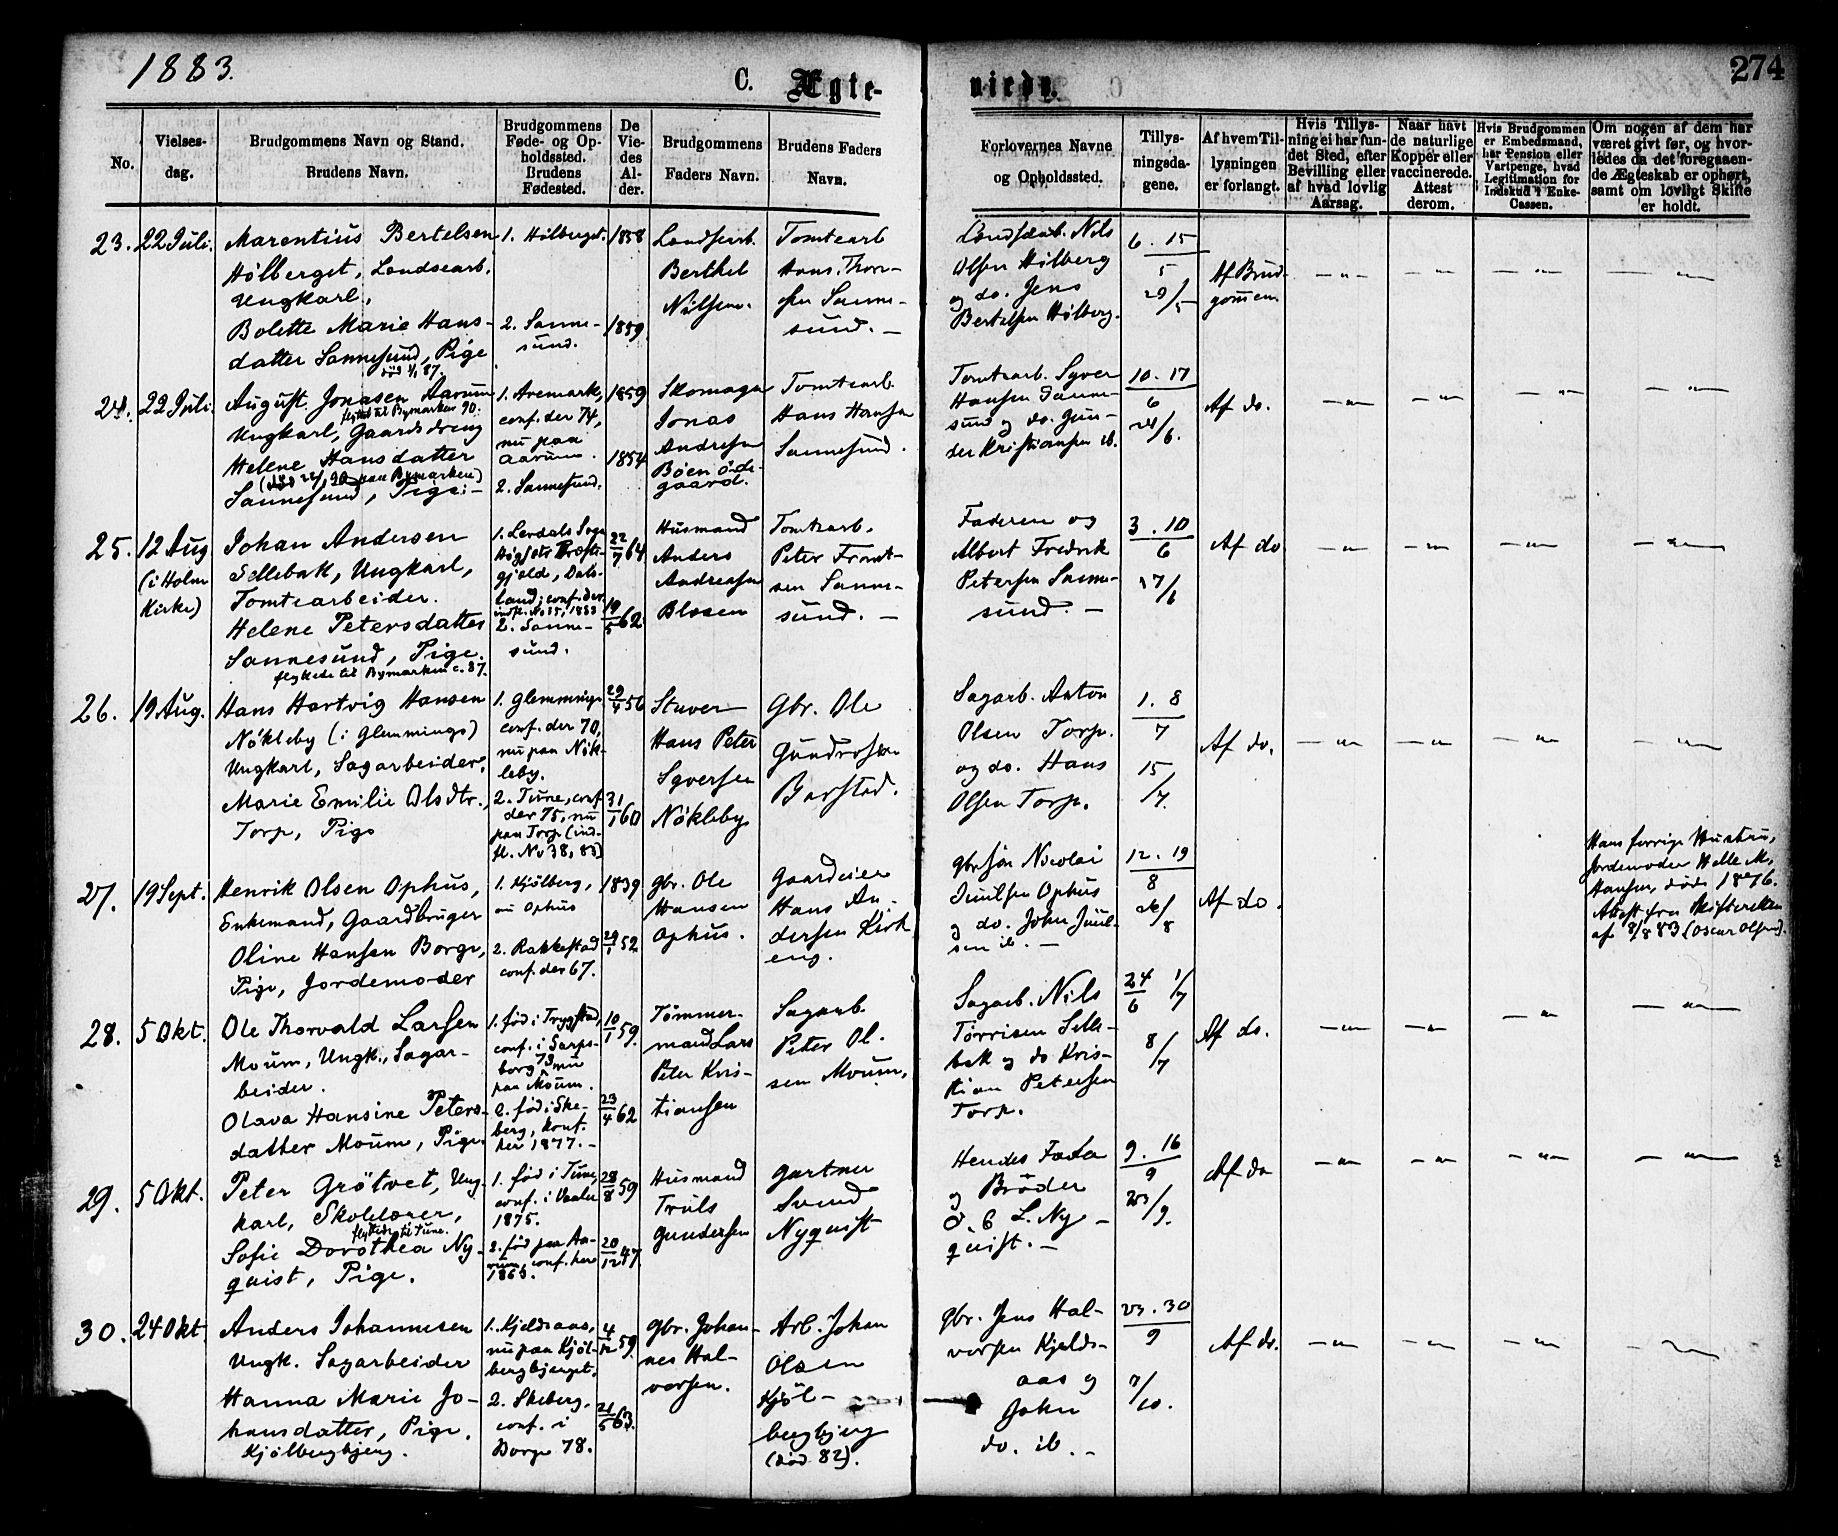 1883.
C. Ægte-
viede.
274
No.
Vielses-
dag.
Brudgommens Navn og Stand.
Brudens Navn.
Brudgommens
Føde- og Op-
holdssted.
Brudens
Fødested.
De
Vie-
des
Al-
der.
Brudgommens
Faders Navn.
Brudens Faders
Navn.
Forlovernes Navne
og Opholdssted.
Tillys-
ningsda-
gene.
Af hvem Til-
lysningen
er forlangt.
Hvis Tillys-
ning ei har fun-
det Sted, efter
Bevilling eller
af hvad lovlig
Aarsag.
Naar havt
de naturlige
Kopper eller
vaccinerede.
Attest
derom.
Hvis Brudgommen
er Embedsmand,
har Pension eller
Vartpenge, hvad
Legitimation for
Indskud i Enke-
Cassen.
Om nogen af dem har
været givt før, og hvor-
ledes da det foregaaen-
de Ægteskab er ophørt,
samt om lovligt Skifte
er holdt.
23.
22 Juli.
Marentius Bertelsen
Hølberget, Landsearb.
Ungkarl,
Bolette Marie Hans-
datter Sannesund, Pige
1. Hølberget.
2. Sanne-
sund.
1858
1859.
Berthel
Nilsen.
Tomtearb
Hans Thor-
sen Sanne-
sund. —
Nils
Olsen Hølberg
og do. Jens
Bertelsen Hølberg.
6. 15
5
20/5
Af Brud-
gommen
24.
22 Juli.
August Jonasen Aarum
flyttet til Bymarken 90.
Ungkarl, Gaardsdreng
Helene Hansdatter
(død 22/1 90 paa Bymarken)
Sannesund, Pige —
1. Aremark,
conf. der 74,
nu paa
Aarum.
2. Sannesund.
1859
1854
Skomager
Jonas
Andresen
Bøen øde-
gaard.
Tomtearb.
Hans Hansen
Sannesund.
Tomtearb. Syver
Hansen Sanne-
sund og do. Gun-
der Kristiansen ib.
10. 17
6
24/6.
Af do.
25.
12 Aug
(i Holm
Kirke)
Johan Andersen
Sellebak, Ungkarl,
Tomtearbeider.
Helene Petersdatter
Sannesund, Pige.
flyttede til Bymarken c. 87.
1. Lerdals Sogn
Høgsæter Præste-
gjeld, Dals-
land, conf. der.
indfl. No 35, 1883
2. Sanne-
sund.
22/7 64
19/5 62
Husmand
Anders
Andreasen
Blosen
Tomtearb.
Peter Frant-
sen Sanne-
sund. —
Faderen og
Albert Fredrik
Petersen Sanne-
sund. —
3. 10
6
17/6
Af do
26.
19 Aug.
Hans Hartvig Hansen
Nökleby (i Glemminge)
Ungkarl, Sagarbeider,
Marie Emilie Olsdtr.,
Torp, Pige
1. Glemminge
conf. der 70,
nu paa Nök-
leby.
2. Tune, conf
der 75, nu
paa Torp (ind-
fl. No 38, 83)
29/4 56
31/1 60
Stuver
Hans Peter
Syversen
Nökleby
Gbr. Ole
Gundersen
Borstad.
Sagarb. Anton
Olsen Torp.
og do. Hans
Olsen Torp.
1. 8
7
15
/7.
Af do.
27.
19 Sept.
Henrik Olsen Ophus,
Enkemand, Gaardbruger
Oline Hansen Borge,
Pige, Jordemoder
1. Kjølberg,
nu Ophus
2. Rakkestad
conf. der 67.
1839
29/1 52
Gbr. Ole
Hansen
Ophus.
Gaardeier
Hans An-
dersen Kirk
eng.
Gbrsøn Nicolai
Juulsen Ophus
og do. John Juul-
sen ib. —
12. 19
8
26/8
Af do.
Hans forrige Hustru,
Jordemoder Helle M.
Hansen, døde 1876.
Attest fra Skifteretten
af 8/8 83 (Oscar Olsen).
28.
5 Okt.
Ole Thorvald Larsen
Moum, Ungk., Sagar-
beider.
Olava Hansine Peters-
datter Moum, Pige.
1. fød i Trygstad,
conf. i Sarps-
borg 73, nu
paa Moum.
2. fød i Ske-
berg, konf.
her 1877. —
10/1 59.
23/4 62
Tømmer-
mand Lars
Peter Kris-
tiansen
Sagarb.
Peter Ol-
sen Moum.
Sagarb. Nils
Tørrisen Selle-
bak og do Kris-
tian Petersen
Torp.
24/6 1/7
8/7
Af do.
29.
5 Okt.
Peter Grötvet, Ung-
karl, Skolelærer,
flyttede til Tune.
Sofie Dorothea Ny-
quist, Pige.
1. fød i Tune,
conf. i Vaaler
1875.
2. fød paa Aa-
rum, conf. her
28/8 59
20/12 47
Husmand
Truls
Gundersen
Gartner
Svend
Nyquist
Hendes Fader
og Broder
O. C L. Ny-
quist. —
9. 16
9
23/9.
Af do
30.
24 Okt
Anders Johannesen
Ungk. Sagarbeider
Hanna Marie Jo-
hansdatter, Pige.
Kjølbergbjerg.
1. Kjeldsaas,
nu paa Kjøl-
bergbjerget.
2. Skeberg,
conf. i
Borge 78.
4/12 59.
21/5 63.
Gbr. Johan-
nes Hal-
vorsen.
Arb. Johan
Olsen
Kjøl-
bergbjerg
(død 82).
Gbr. Jens Hal-
vorsen Kjelds-
aas og
John
do. ib. —
23. 30
9
7/10.
Af do.